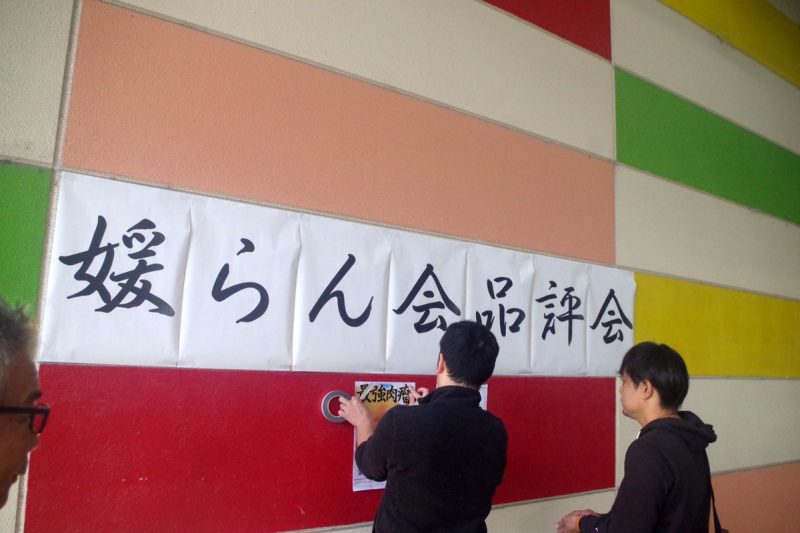 媛らん会品評会
最強肉瘤